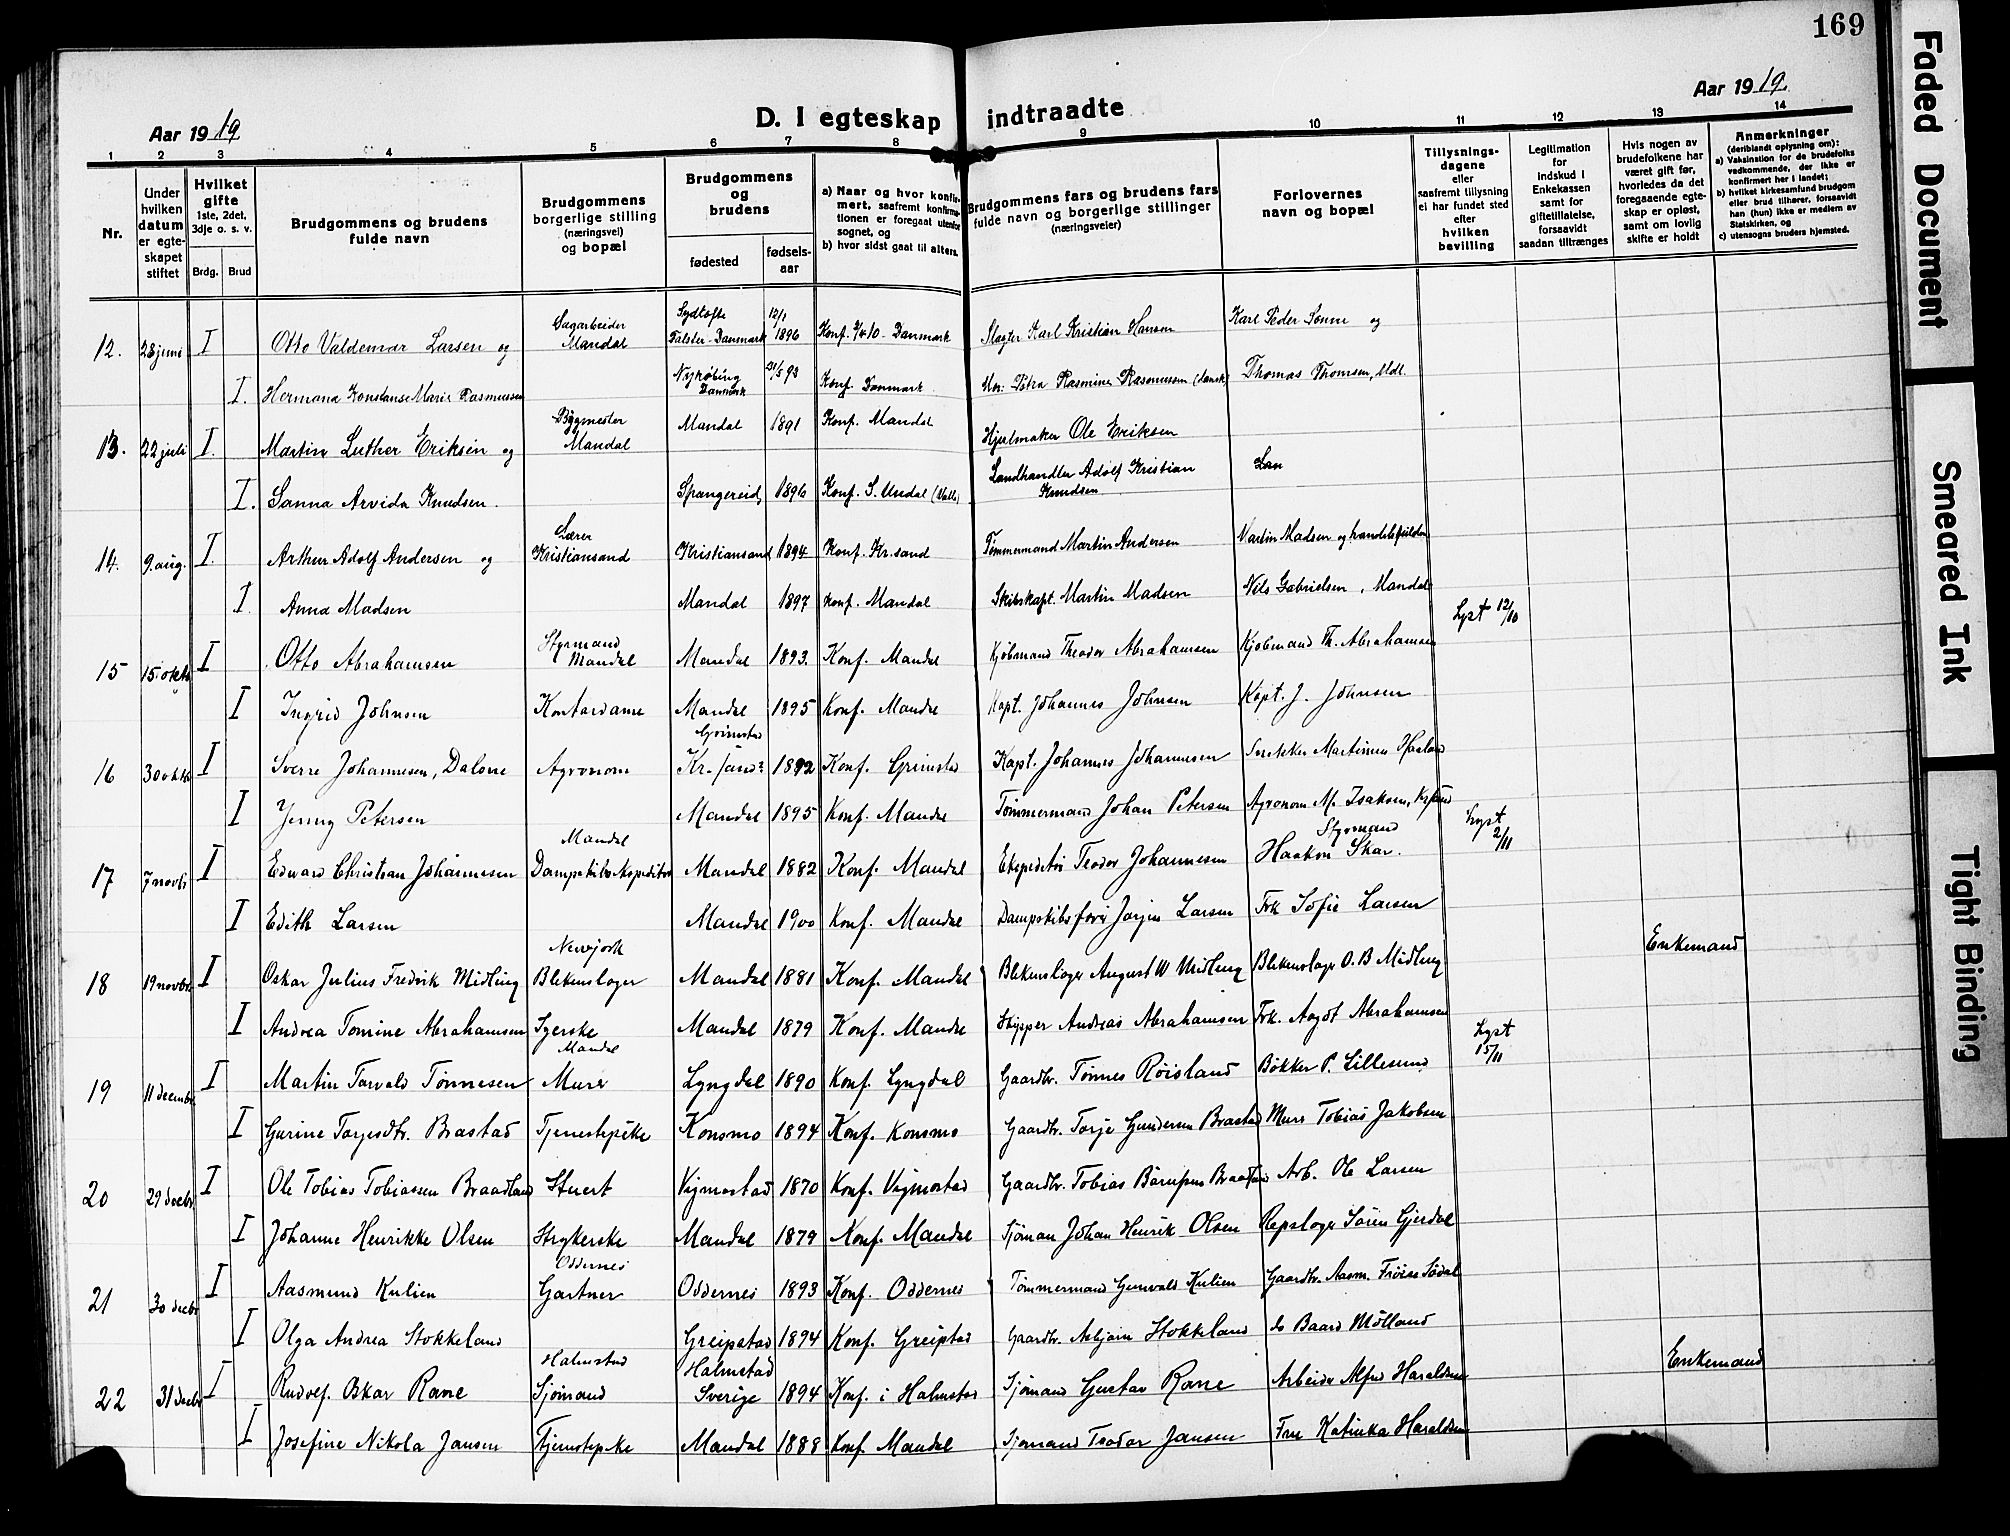 169
Aar 1919
D. I egteskap indtraadte
Aar 1919.
1 2 3 4 5 6 7 8 9 10 11 12 13 14
Nr.
Under hvilken datum er egteskapet stiftet
Hvilket gifte 1ste, 2det, 3dje o. s. v.
Brdg. Brud
Brudgommens og brudens fulde navn
Brudgommens borgerlige stilling (næringsvei) og bopæl
Brudgommens og brudens
fødested fødselsaar
a) Naar og hvor konfirmert, saafremt konfirmationen er foregaat utenfor sognet, og
b) hvor sidst gaat til alters.
Brudgommens fars og brudens fars fulde navn og borgerlige stillinger (næringsveier)
Forlovernes navn og bopæl
Tillysningsdagene eller saafremt tillysning ei har fundet sted efter hvilken bevilling
Legitimation for indskud i Enkekassen samt for giftetillatelse, forsaavidt saadan tiltrænges
Hvis nogen av brudefolkene har været gift før, hvorledes da det foregaaende egteskap er opløst, samt om lovlig skifte er holdt
Anmerkninger (deriblandt oplysning om):
a) Vaksination for de brudefolks vedkommende, der ikke er konfirmert her i landet;
b) hvilket kirkesamfund brudgom eller brud tilhører, forsaavidt han (hun) ikke er medlem av Statskirken, og
c) utensogns bruders hjemsted.
12. 28 juni I Otto Valdemar Larsen og Sagarbeider Mandal Sydtofte Falster-Danmark 12/1 1896 Konf. 3/4 10 - Danmark Slagter Karl Kristian Hansen Karl Peder Sonne og
I. Hermana Konstanse Marie Rasmussen Nykøbing Danmark 21/5 93 Konf. Danmark Mor: Petra Rasmine Rasmussen (dansk) Thomas Thomsen, Mdl.
13. 22 juli I. Martin Luther Eriksen og Bygmester Mandal Mandal 1891 Konf. Mandal Hjulmaker Ole Eriksen
I. Sanna Arvida Knudsen. Spangereid 1896 Konf. S. Undal (Valle) Landhandler Adolf Kristian Knudsen
14. 9. aug. I. Arthur Adolf Andersen og Lærer Kristiansand Kristiansand 1894 Konf. Kr.sand Tømmermand Martin Andersen Martin Madsen og
I. Anna Madsen Mandal 1897 Konf. Mandal Skibskapt. Martin Madsen Nils Gabrielsen, Mandal
15 15. oktb I Otto Abrahamsen Styrmand Mandal Mandal 1893. Konf. Mandal Kjøbmand Theodor Abrahamsen Kjøbmand Th. Abrahamsen Lyst 12/10
I Ingrid Johnsen Kontordame Mandal 1895 Konf. Mandal Kapt. Johannes Johnsen Kapt. J. Johnsen
16 30 oktb I Sverre Johannesen, Dalone Agronom Grimstad Kr. sand? 1892 Konf. Grimstad Kapt. Johannes Johannesen Martinius Haaland
I Jenny Petersen Mandal 1895 Konf. Mandal Tømmermand Johan Petersen Agronom M. Isaksen, Krsand Lyst 2/11
17 7 novbr I Edward Christian Johannesen Mandal Dampskibsekspeditør Mandal 1882 Konf. Mandal Ekspeditør Teodor Johannesen Styrmand Haakon Skar.
I Edith Larsen Mandal 1900 Konf. Mandal Dampskibsfører Jørgen Larsen Frk Sofie Larsen
18 19 novbr I Oskar Julius Fredrik Midling Newjork Blikenslager Mandal 1881 Konf. Mandal Blikenslager August W Midling Blikenslager O. B Midling Enkemand
I Andrea Tomine Abrahamsen Syerske Mandal 1879 Konf. Mandal Skipper Andreas Abrahamsen Frk. Aagot Abrahamsen Lyst 15/11
19 11 decembr I Martin Torvald Tønnesen Mandal Murer Lyngdal 1890 Konf. Lyngdal Gaardbr. Tønnes Røisland Bøkker P. Lillesund
I Gurine Torjesdtr. Brastad Tjenestepike Konsmo 1894 Konf. Konsmo Gaardbr. Torje Gundersen Brastad Murer Tobias Jakobsen
20 29 decbr I Ole Tobias Tobiassen Braadland Stuert Vigmostad 1870 Konf. Vigmostad Gaardbr. Tobias Braadland Arb. Ole Larsen
I Johanne Henrikke Olsen Strykerske Mandal 1879 Konf. Mandal Sjøman Johan Henrik Olsen Repslager Søren Gjerdal
21 30 decbr I Aasmund Kulien Oddernes Gartner Oddernes 1893 Konf. Oddernes Tømmermand Gunvald Kulien Gaardbr. Aasm. Frøise Sødal
I Olga Andrea Stokkeland Greipstad 1894 Konf. Greipstad Gaardbr. Asbjørn Stokkeland do Baard Mølland
22 31 decbr I Rudolf Oskar Rane Halmstad Sjømand Halmstad Sverige 1894 Konf. i Halmstad Sjømand Gustav Rane Arbeider Alfred Haraldsen Enkemand
I Josefine Nikola Jansen Tjenestepike Mandal 1888 Konf. Mandal Sjømand Teodor Jansen Fru Katinka Haraldsen
Faded Document
Smeared Ink
Tight Binding